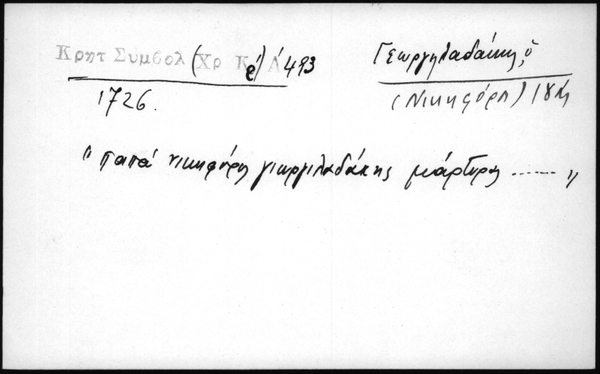 Κρητ Συμβολ (Χρ Κέ) Ά 493
1726.
Γεωργηλαδάκης, ὁ
(Νικηφόρη) 18
"παπά νικηφόρης γιωργιλαδάκης μάρτυρης ......."